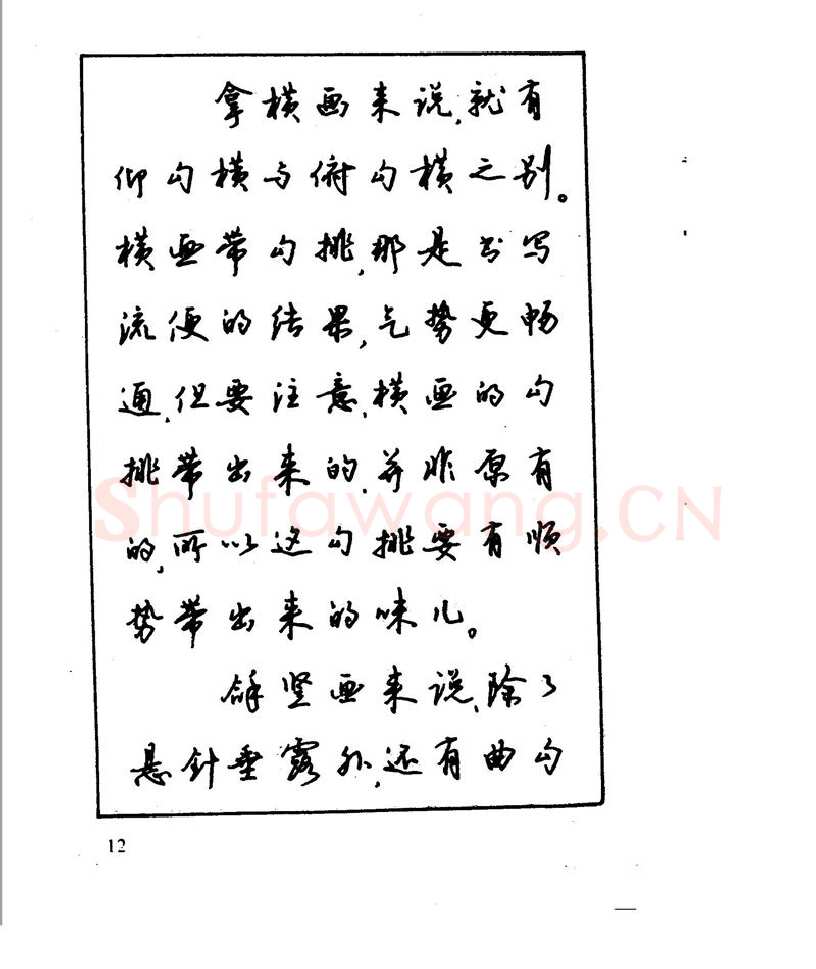 拿横画来说,就有
仰勾横与俯勾横之别。
横画带勾挑,那是书写
流便的结果,气势更畅
通,但要注意,横画的勾
挑带出来的,并非原有
的,所以这勾挑要有顺
势带出来的味儿。
竖画来说,除了
悬针垂露外,还有曲勾
12
Shufawang.CN